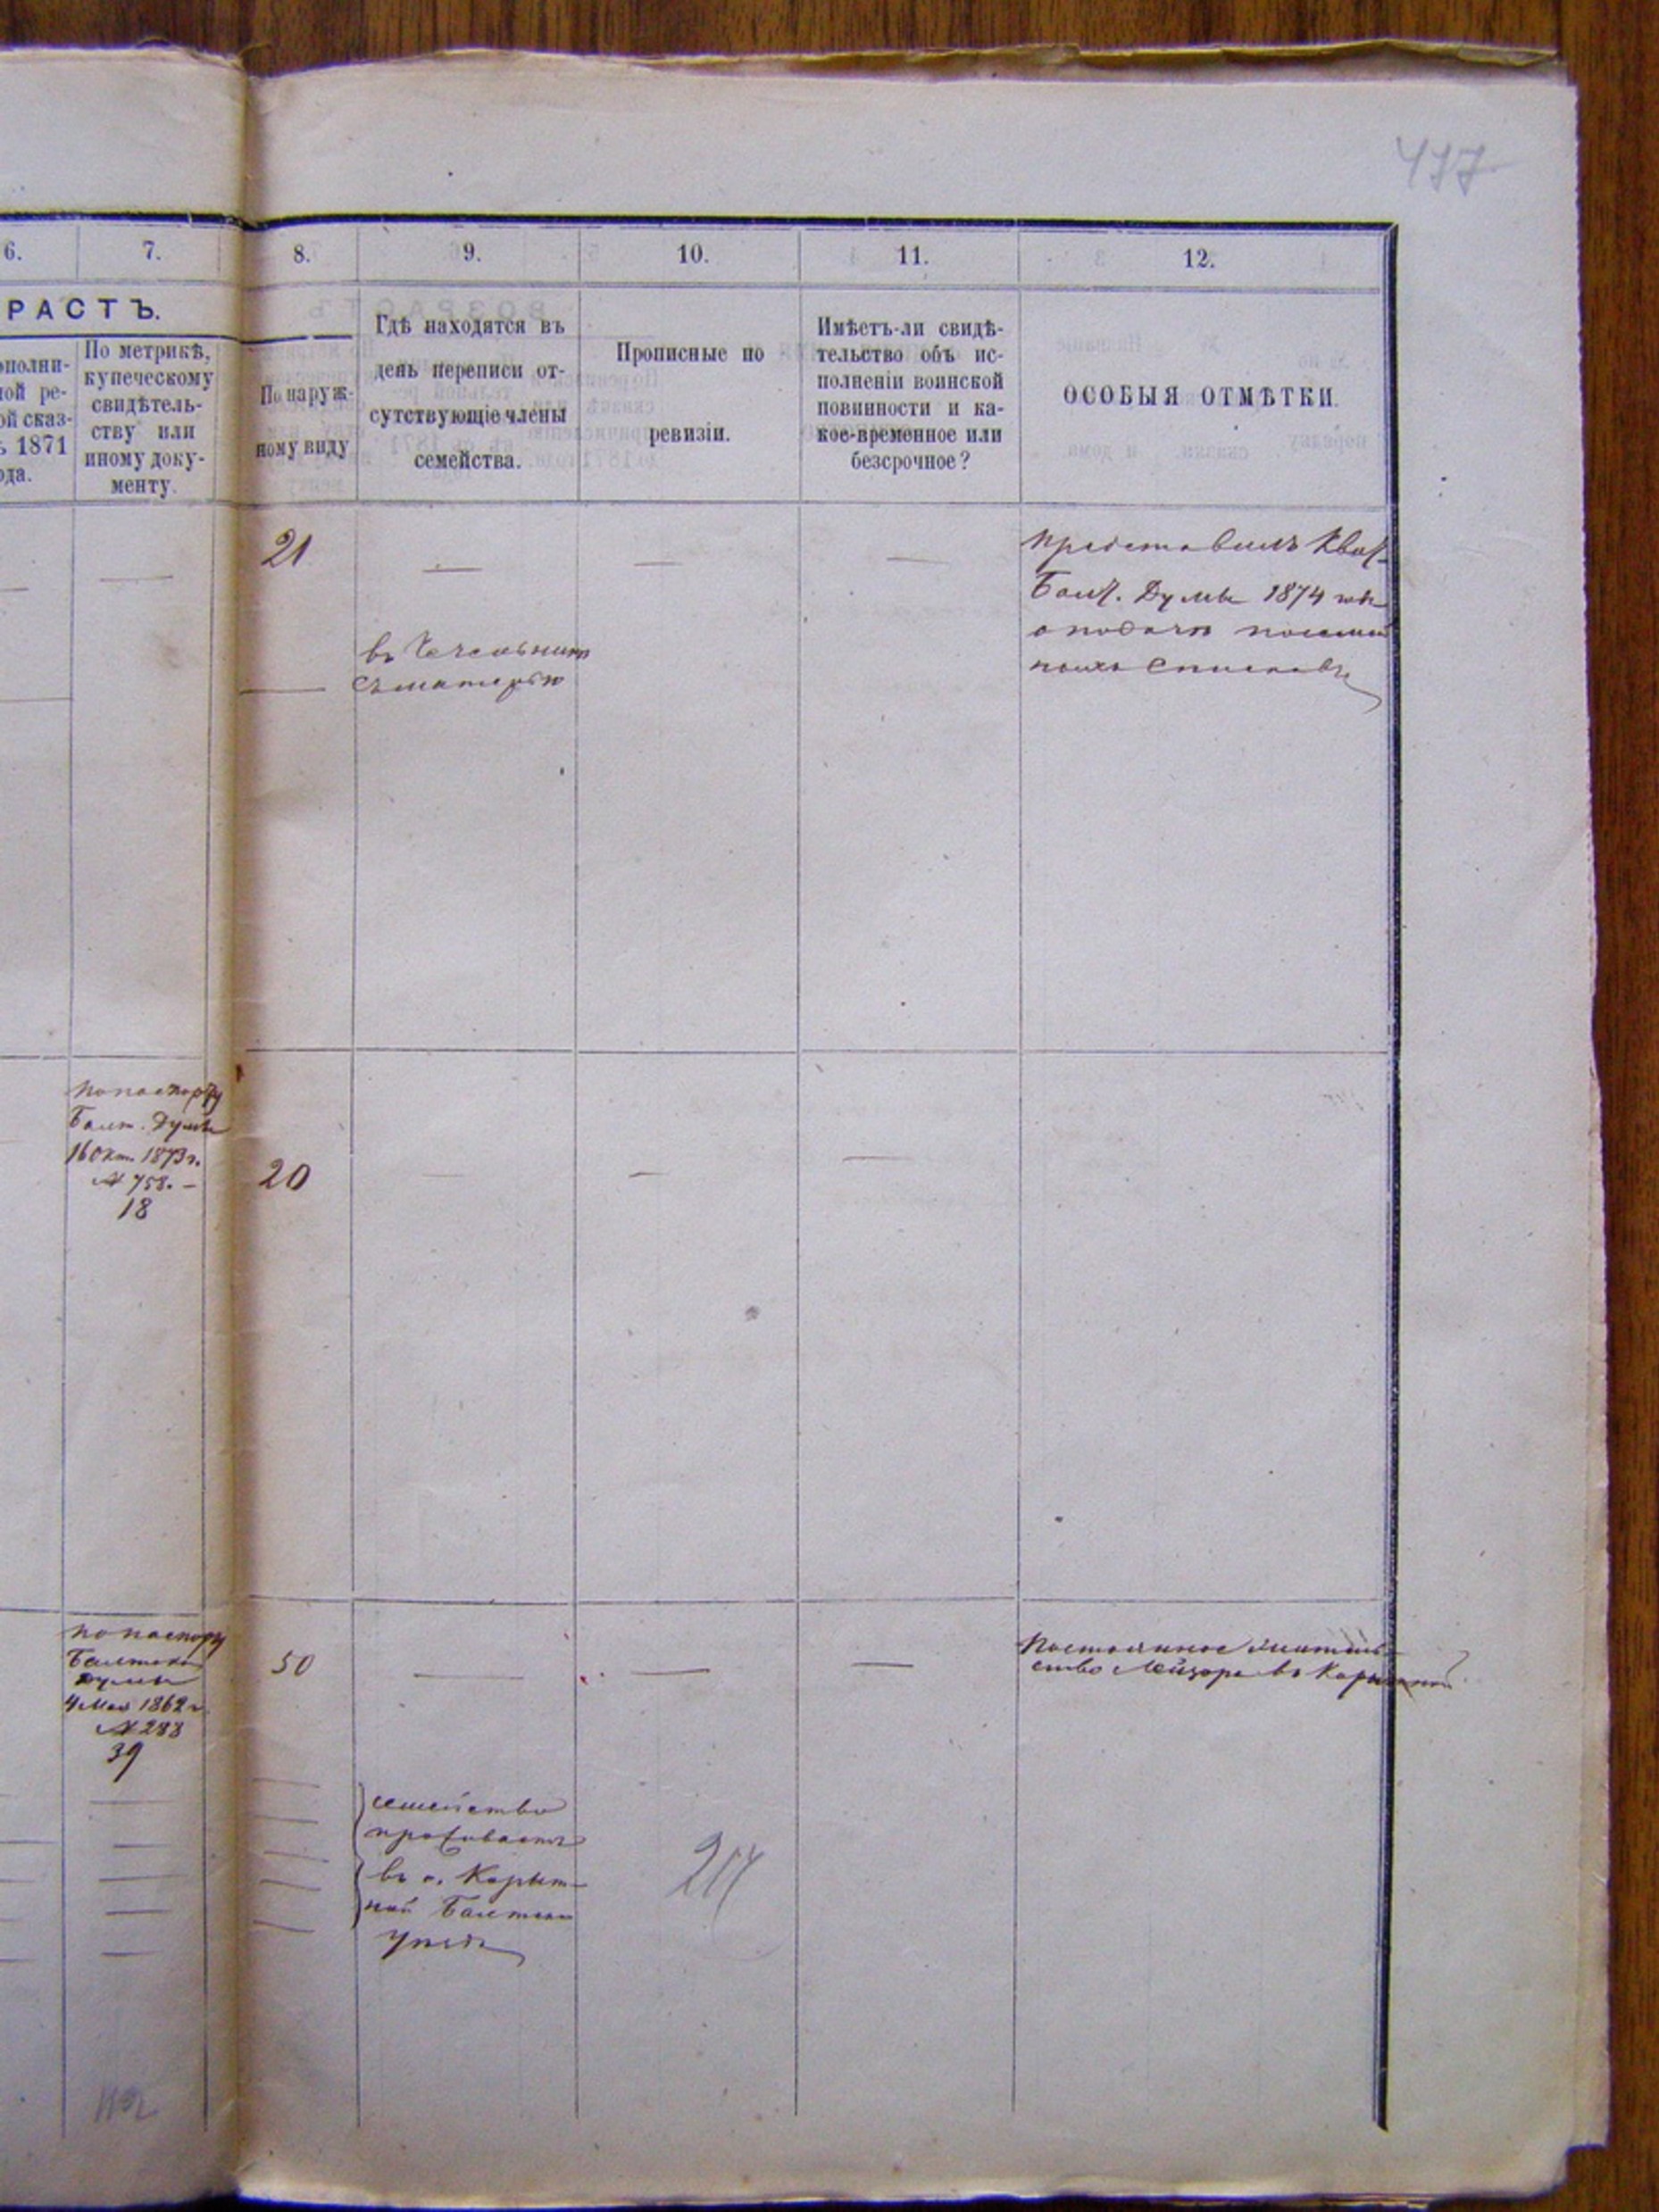 477
6.
7.
8.
9.
10.
11.
12.
РАСТЪ.
ополни-
ной ре-
ой сказ-
ѣ 1871
ода.
По метрикѣ,
купеческому
свидѣтель-
ству или
иному доку-
менту.
По наруж-
ному виду
Гдѣ находятся въ
день переписи от-
сутствующіе члены
семейства.
Прописные по
ревизіи.
Имѣетъ-ли свидѣ-
тельство объ ис-
полненіи воинской
повинности и ка-
кое-временное или
безсрочное?
ОСОБЫЯ ОТМѢТКИ.
21
въ Чечельникѣ
съ матерью
Представилъ Квит.
Балт. Думы 1874 года
о подачи посемей
ныхъ списковъ
по паспорту
Балт. Думы
16 Окт. 1873 г.
№ 758. —
18
20
по паспорту
Балтской
Думы
4 Мая 1862 г.
№ 288
39
50
Постоянное житель
ство Лейзора въ Корытной
семейство
проживаетъ
въ с. Корыт-
ной Балтскаго
уѣзда
217